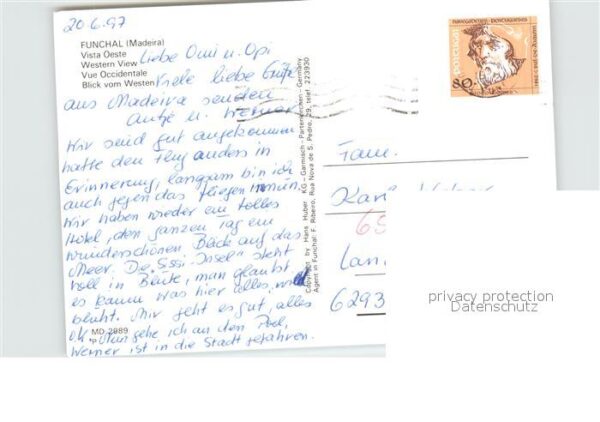 20.6.97
FUNCHAL (Madeira)
Vista Oeste
Western View
Vue Occidentale
Blick vom Westen
Liebe Omi u. Opi
Viele liebe Grüße
aus Madeira senden
Antje u. Werner
Wir sind gut angekommen
hatte den Flug anders in
Erinnerung, langsam bin ich
auch gegen das fliegen immun.
Wir haben wieder ein tolles
Hotel, den ganzen Tag ein
wunderschönen Blick auf das
Meer. Die "Issi-Insel" steht
voll in Blüte, man glaubt
es kaum was hier alles
blüht. Mir geht es gut, alles
o.k. Nun gehe ich an den Pool,
Werner ist in die Stadt gefahren.
MD 2989
Copyright by Hans Huber KG - Garmisch - Partenkirchen - Germany
Agent in Funchal: F. Ribeiro, Rua Nova de S. Pedro, 29, telef. 223930
NAVEGADORES PORTUGUESES
PORTUGAL
80
Fam.
Lan
6293
privacy protection
Datenschutz